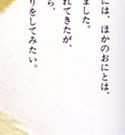 には、ほかのおにとは、
ました。
れてきたが、
ら、
りをしてみたい。